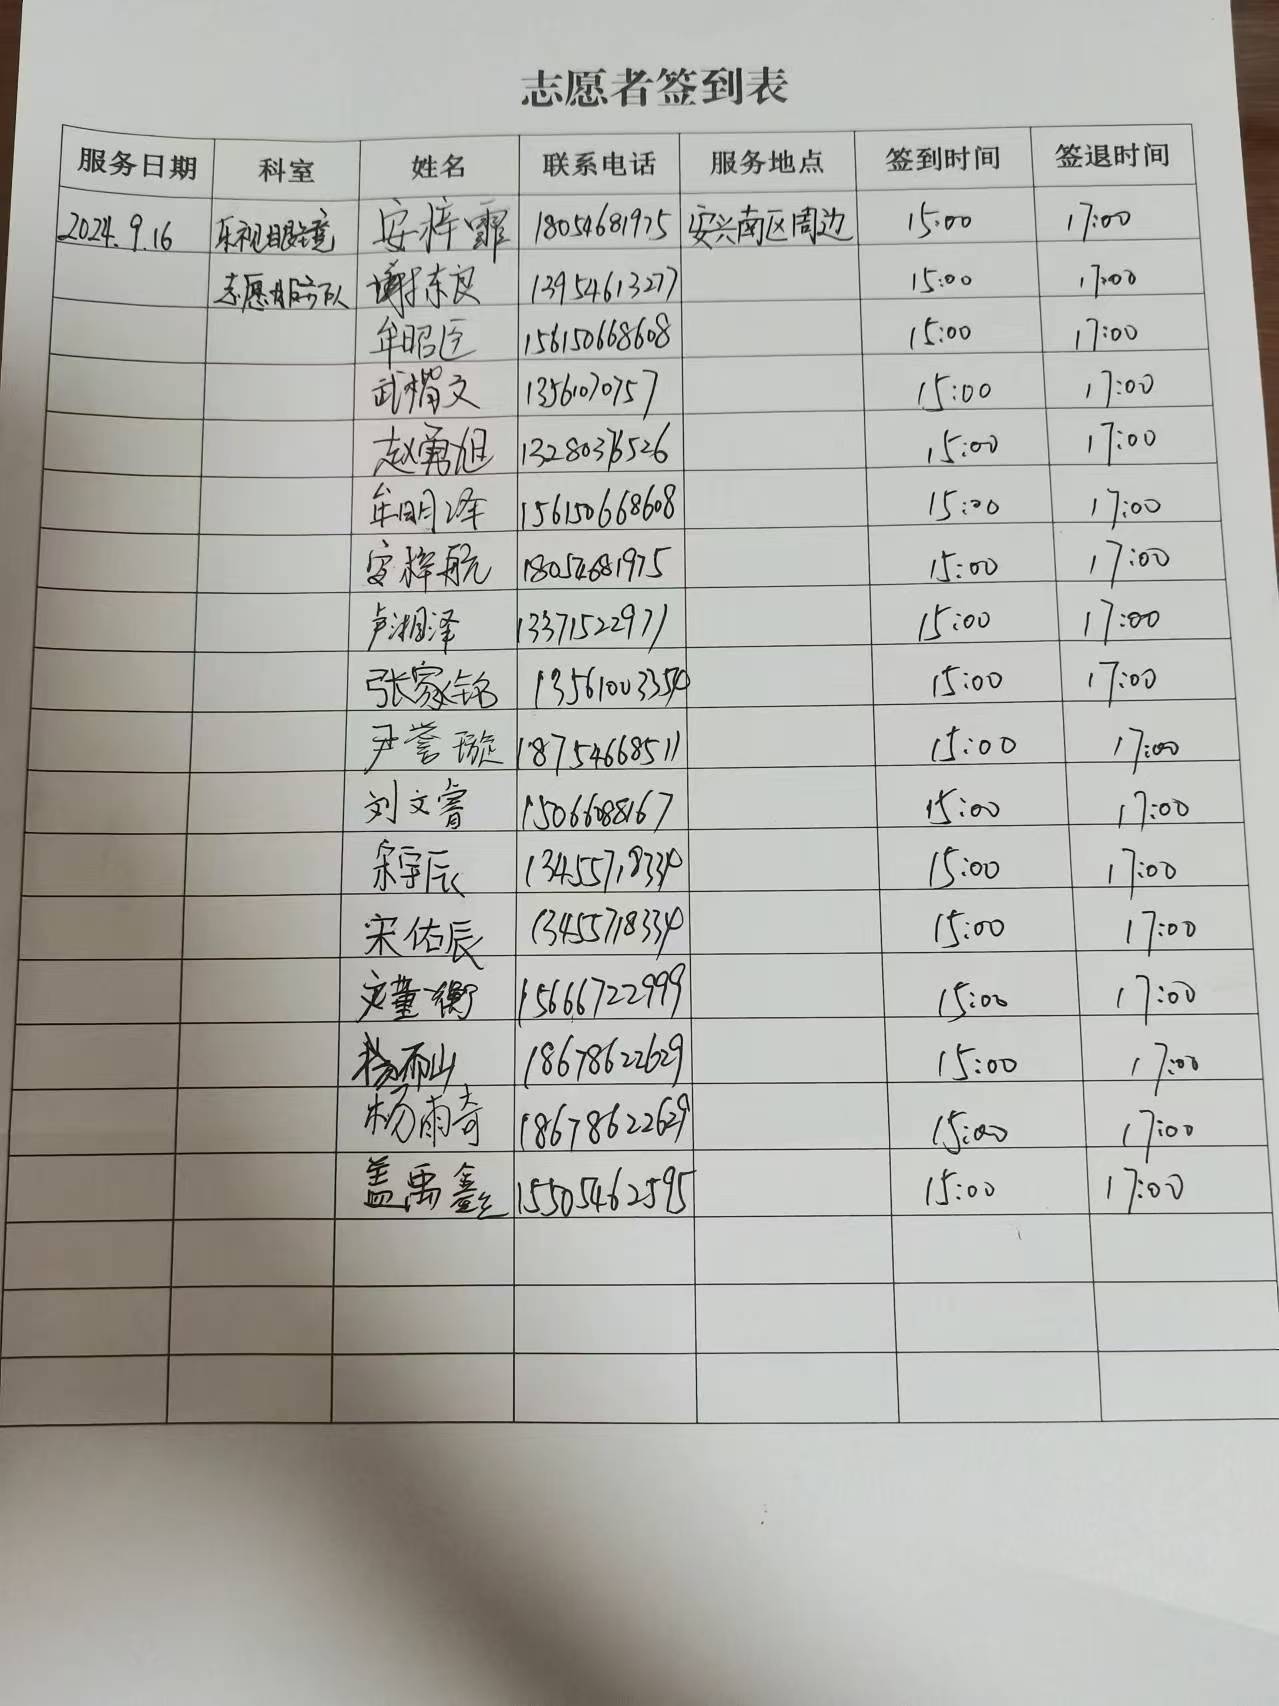 志愿者签到表
服务日期 科室 姓名 联系电话 服务地点 签到时间 签退时间
2024.9.16 乐视眼镜 安梓霏 18054681975 安兴南区周边 15:00 17:00
志愿服务队 谢东良 13954613277 15:00 17:00
牟昭匡 156150668608 15:00 17:00
武楷文 13561070757 15:00 17:00
赵勇旭 15:00 17:00
牟明泽 156150668608 15:00 17:00
安梓航 18054681975 15:00 17:00
卢湘泽 13371522971 15:00 17:00
张家铭 13561003354 15:00 17:00
尹誉璇 18754668511 15:00 17:00
刘文睿 15066088167 15:00 17:00
宋宇辰 13455718334 15:00 17:00
宋佑辰 13455718334 15:00 17:00
文董衡 15666722999 15:00 17:00
杨雨山 18678622629 15:00 17:00
杨雨奇 18678622629 15:00 17:00
盖禹鑫 15505462595 15:00 17:00